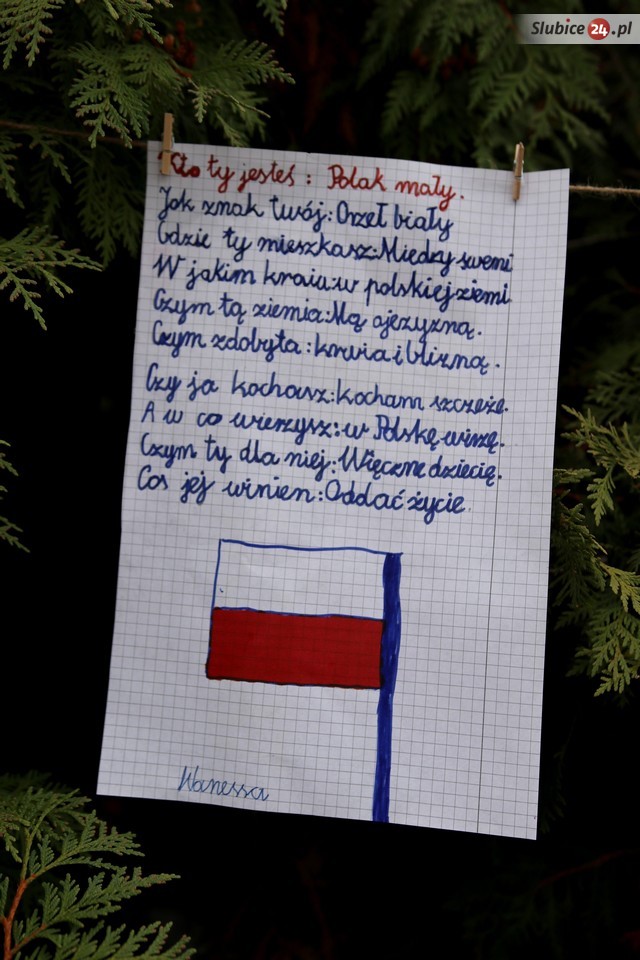 Slubice24.pl
Kto ty jesteś : Polak mały.
Jak znak twój: Orzeł biały
Gdzie ty mieszkasz: Miedzy swemi
W jakim kraiu: w polskiej ziemi
Czym tą ziemia: Mą ojczyzną.
Czym zdobyta : krwia i blizną.
Czy ja kochasz: kocham szczeże.
A w co wierzysz: w Polskę wirzę.
Czym ty dla niej: Więczne dziecię.
Cos jej winien: Oddać życie
Wanessa